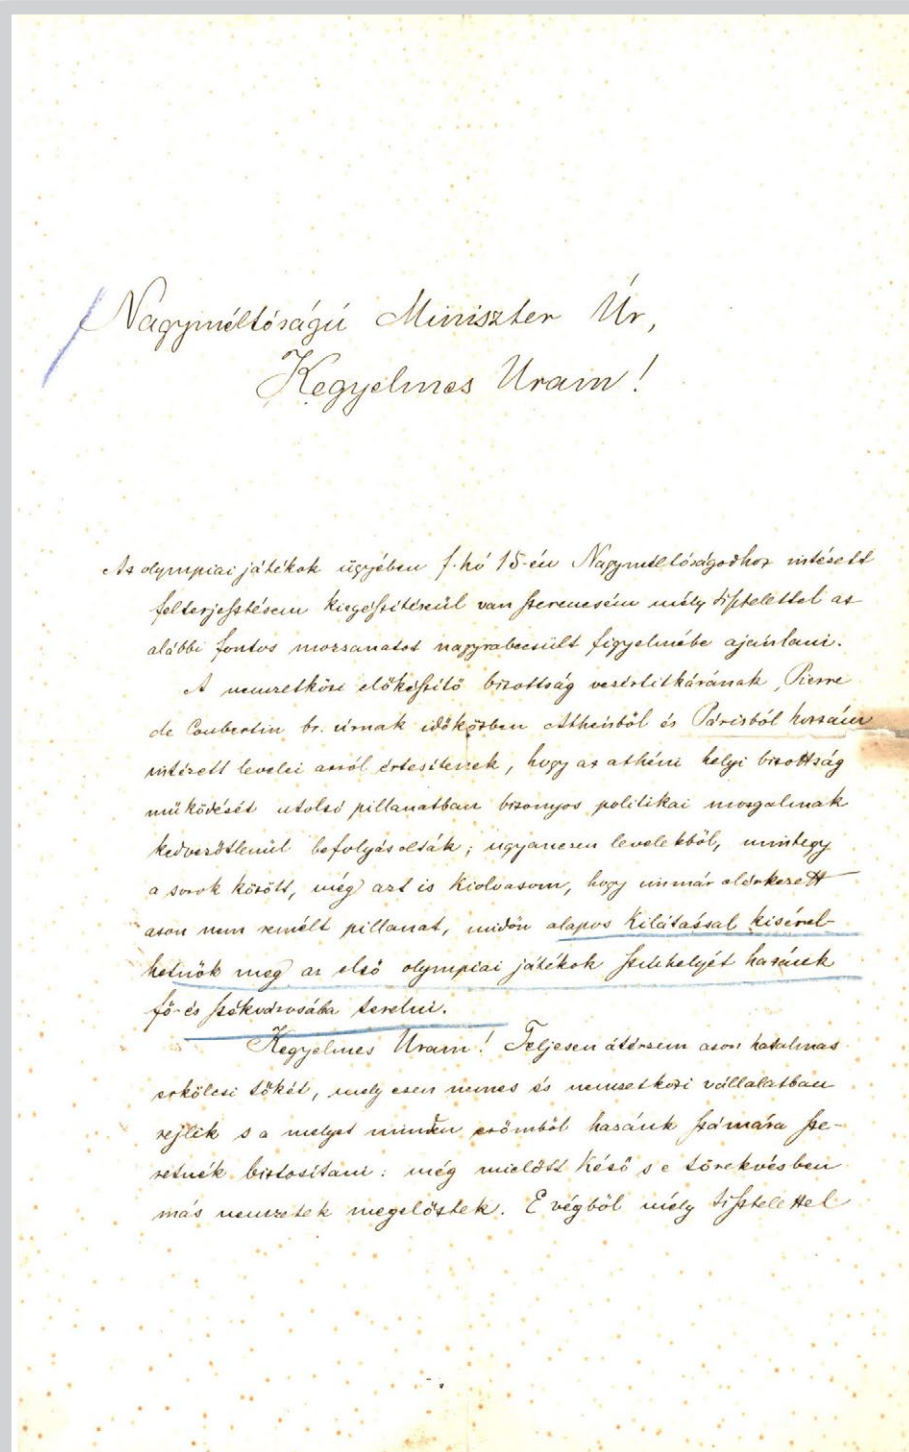 Nagyméltóságú Miniszter Úr,
Kegyelmes Uram!
Az olympiai játékok ügyében f. hó 15-én Nagyméltóságodhoz intézett
felterjesztésem kiegészítéséül van szerencsém mély tisztelettel az
alábbi fontos mozzanatot nagyrabecsült figyelmébe ajánlani.
A nemzetközi előkészítő bizottság vezértitkárának, Pierre
de Coubertin br. úrnak időközben Athénből és Párisból hozzám
intézett levelei arról értesítenek, hogy az athéni helyi bizottság
működését utolsó pillanatban bizonyos politikai mozgalmak
kedvezőtlenül befolyásolták; ugyanezen levelekből, mintegy
a sorok között, még azt is kiolvasom, hogy immár elérkezett
azon nem remélt pillanat, midőn alapos kilátással kisérel-
hetnők meg az első olympiai játékok színhelyét hazánk
fő- és székvárosába terelni.
Kegyelmes Uram! Teljesen átérzem azon hatalmas
erkölcsi tőkét, mely ezen nemes és nemzetközi vállalatban
rejlik s a melyet minden erőmből hazánk számára sze-
retnék biztosítani: még mielőtt késő s e törekvésben
más nemzetek megelőztek. E végből mély tisztelettel